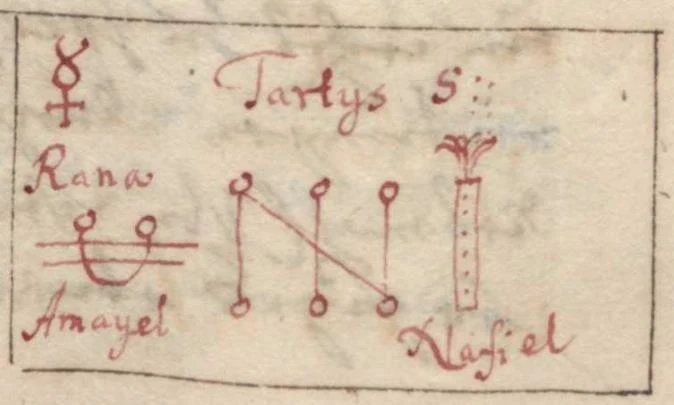 ☿ Tartys S
Rana
Amayel
Nafiel